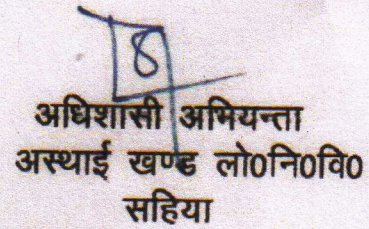 8
अधिशासी अभियन्ता
अस्थाई खण्ड लो0नि0वि0
सहिया